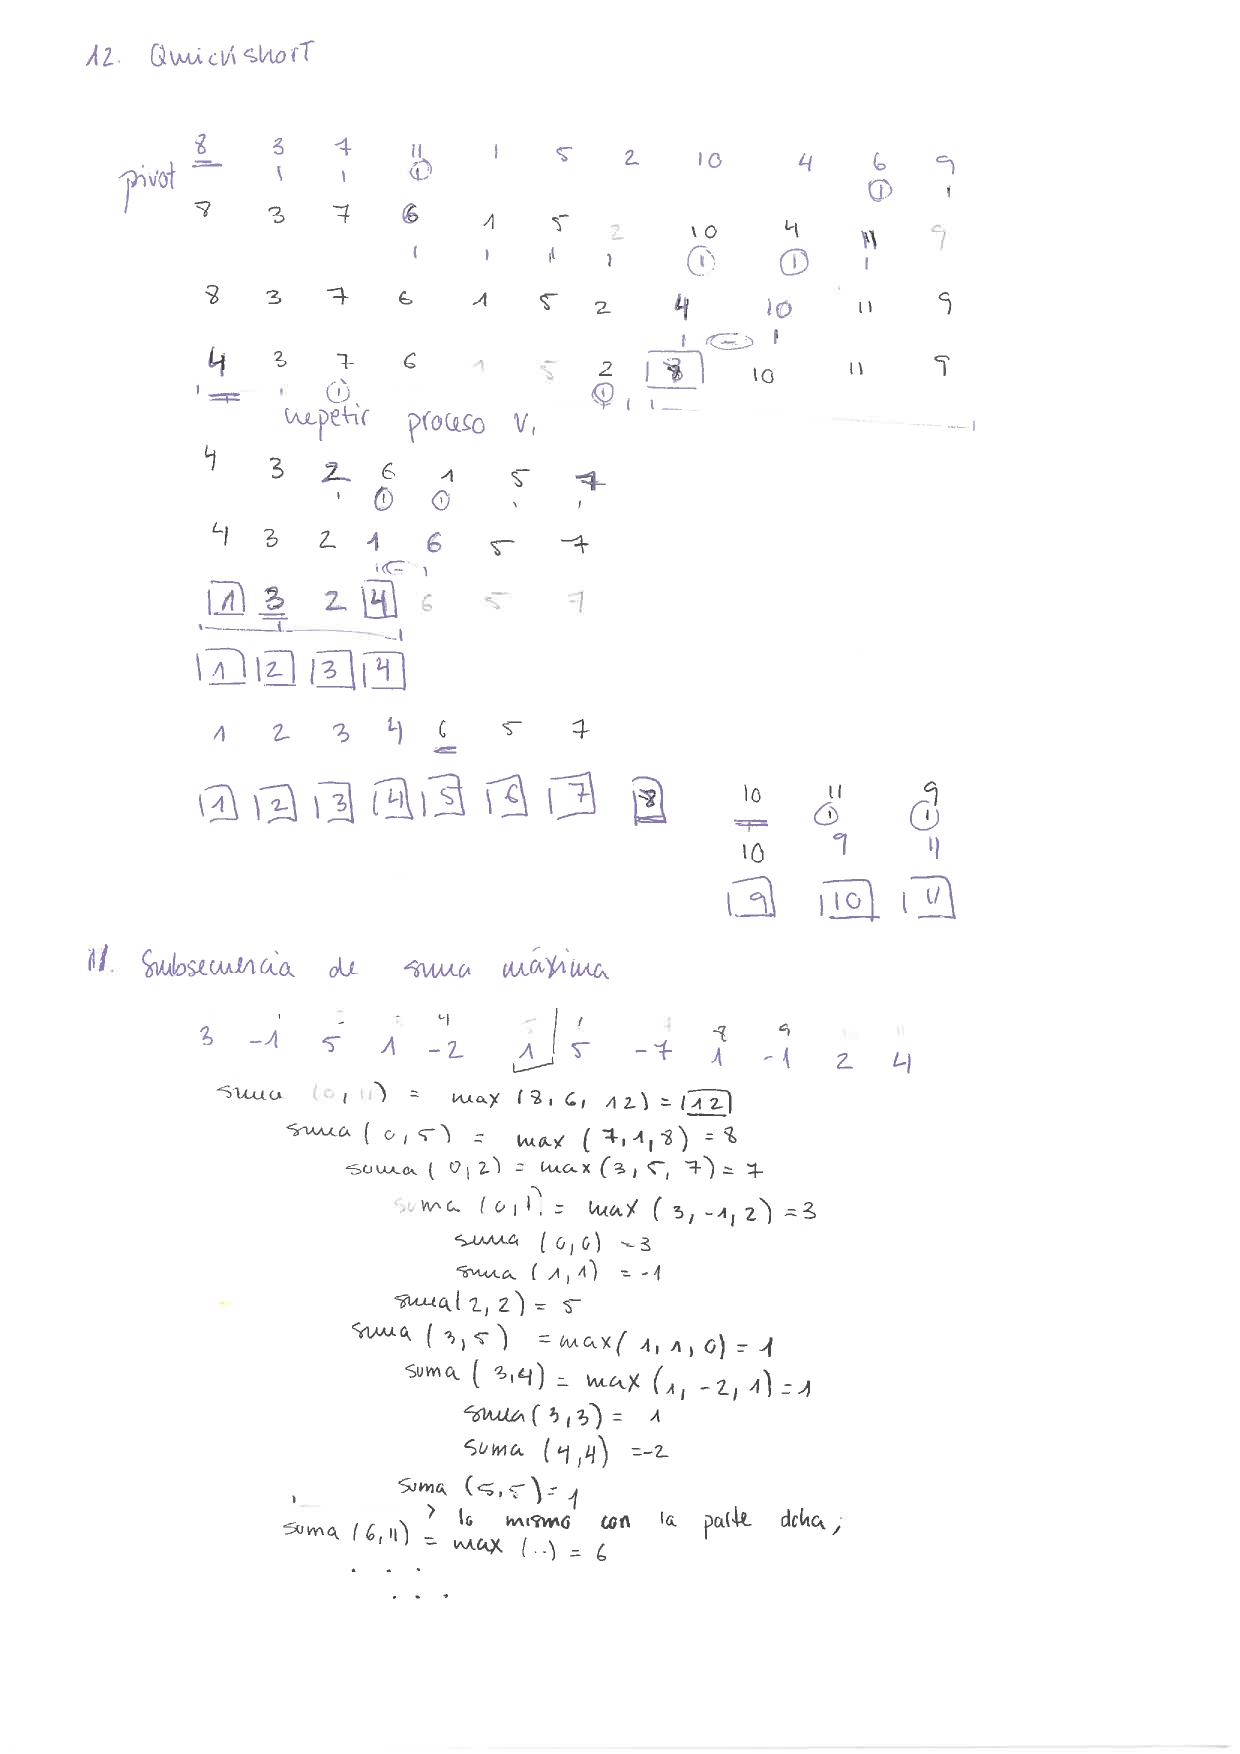 12. Quickshort
8 3 7 11 1 5 2 10 4 6 9
pivot
8 3 7 6 1 5 2 10 4 11 9
8 3 7 6 1 5 2 4 10 11 9
4 3 7 6 1 5 2 8 10 11 9
repetir proceso v,
4 3 2 6 1 5 7
4 3 2 1 6 5 7
1 3 2 4 6 5 7
1 2 3 4
1 2 3 4 6 5 7
1 2 3 4 5 6 7 8 10 11 9
10 9 11
9 10 11
11. Subsecuencia de suma máxima
4 8 9
3 -1 5 1 -2 1 5 -7 1 -1 2 4
suma (0, 11) = max (8, 6, 12) = 12
suma (0,5) = max (7,1,8) = 8
suma (0,2) = max (3, 5, 7) = 7
suma (0,1) = max (3, -1, 2) = 3
suma (0,0) = 3
suma (1, 1) = -1
suma(2, 2) = 5
suma (3,5) = max(1, 1, 0) = 1
suma (3,4) = max (1, -2, 1) = 1
suma (3,3) = 1
suma (4,4) = -2
suma (5,5) = 1
> lo mismo con la parte dcha,
suma (6, 11) = max (..) = 6
. . .
. . .